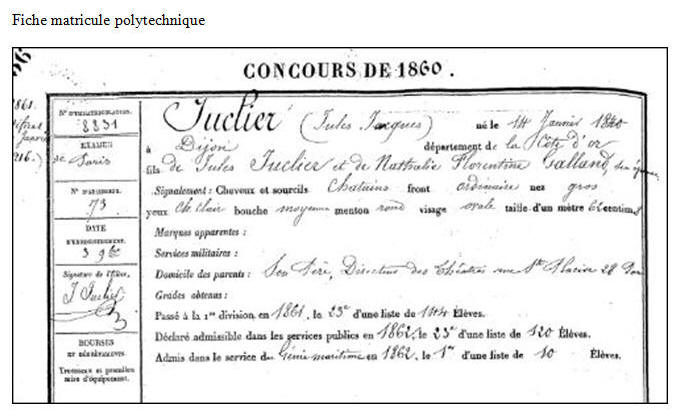 Fiche matricule polytechnique
CONCOURS DE 1860.
1861.
N° D'IMMATRICULATION.
8831
EXAMEN
de Paris
73
DATE
D'ENREGISTREMENT.
3 9bre
Signature de l'Élève.
J Juclier
BOURSES
ET DÉGRÈVEMENTS.
Trousseau et première
mise d'équipement.
Juclier (Jules Jacques) né le 14 Janvier 1840
à Dijon département de la Côte d'or
fils de Jules Juclier et de Nathalie Florentine Galland, son épouse
Signalement : Cheveux et sourcils Chatains front ordinaire nez gros
yeux Ch. clair bouche moyenne menton rond visage ovale taille d'un mètre centim
Marques apparentes :
Services militaires :
Domicile des parents : Son Père, Directeur des Théâtres rue St Placide 28
Grades obtenus :
Passé à la 1re division en 1861, le 23e d'une liste de 144 Élèves.
Déclaré admissible dans les services publics en 1862, le 23e d'une liste de 120 Élèves.
Admis dans le service du Génie maritime en 1862, le 1er d'une liste de 10 Élèves.